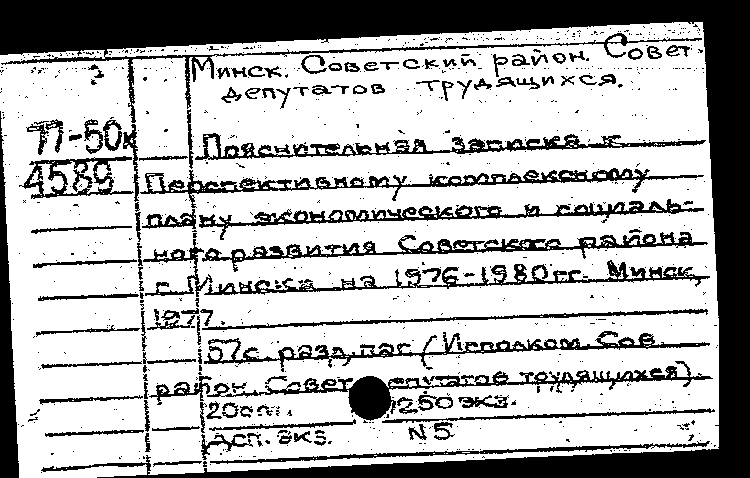 Минск. Советский район. Совет
депутатов трудящихся.
77-50к Пояснительная записка к
4589 Перспективному комплексному
плану экономического и социаль-
ного развития Советского района
г. Минска на 1976-1980гг. Минск,
1977.
57с. разд. паг. (Исполком. Сов.
район. Совет депутатов трудящихся).
200 250 экз.
Дсп. экз. N5